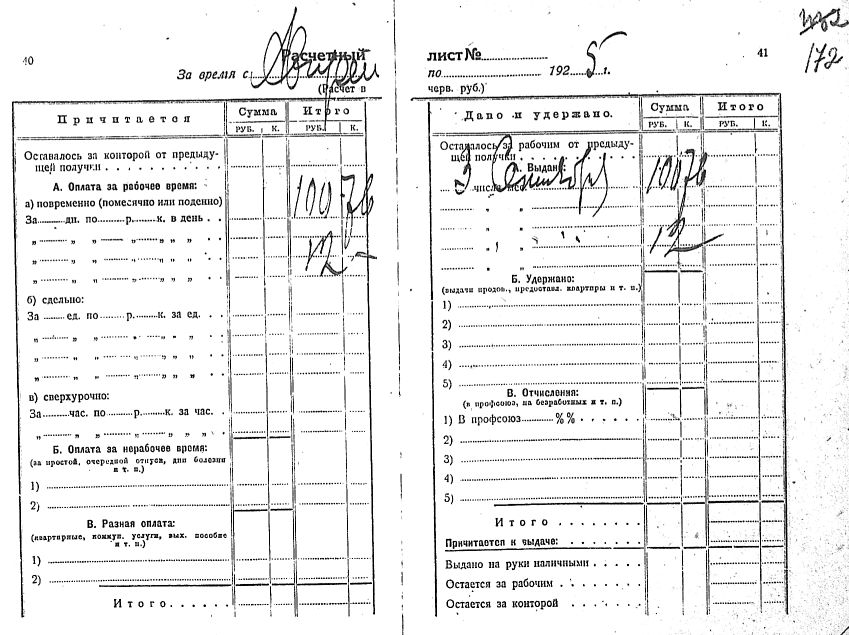 40
Расчетный
За время с
(Расчет в
Причитается
Сумма
Итого
РУБ. К. РУБ. К.
Оставалось за конторой от предыду-
щей получки . . . . . . . .
А. Оплата за рабочее время:
а) повременно (помесячно или поденно)
За ........ дн. по ........ р. ........ к. в день . .
„ ........ „ „ ........ „ ........ „ „ „ . .
„ ........ „ „ ........ „ ........ „ „ „ . .
„ ........ „ „ ........ „ ........ „ „ „ . .
100 76
12 -
б) сдельно:
За ........ ед. по ........ р. ........ к. за ед. . . .
„ ........ „ „ ........ „ ........ „ „ „ . .
„ ........ „ „ ........ „ ........ „ „ „ . .
„ ........ „ „ ........ „ ........ „ „ „ . .
в) сверхурочно:
За ........ час. по ........ р. ........ к. за час. . .
„ ........ „ „ ........ „ ........ „ „ „ .
Б. Оплата за нерабочее время:
(за простой, очередной отпуск, дни болезни
и т. п.)
1)
2)
В. Разная оплата:
(квартирные, коммун. услуги, вых. пособие
и т. п.)
1)
2)
Итого . . . . . .
172
лист №
41
по ........ 1925 г.
черв. руб.)
Дано и удержано.
Сумма
Итого
РУБ. К. РУБ. К.
Оставалось за рабочим от предыду-
щей получки . . . . . . . .
А. Выдано:
числа мес.
100 76
„ „
„ „
„ „
12 —
„ „
Б. Удержано:
(выдачи продов., предоставл. квартиры и т. п.)
1)
2)
3)
4)
5)
В. Отчисления:
(в профсоюз, на безработных и т. п.)
1) В профсоюз ........ %% . . . . . .
2)
3)
4)
5)
Итого . . . . . . .
Причитается к выдаче: . . . . . .
Выдано на руки наличными . . . . .
Остается за рабочим . . . . . . .
Остается за конторой . . . . . .